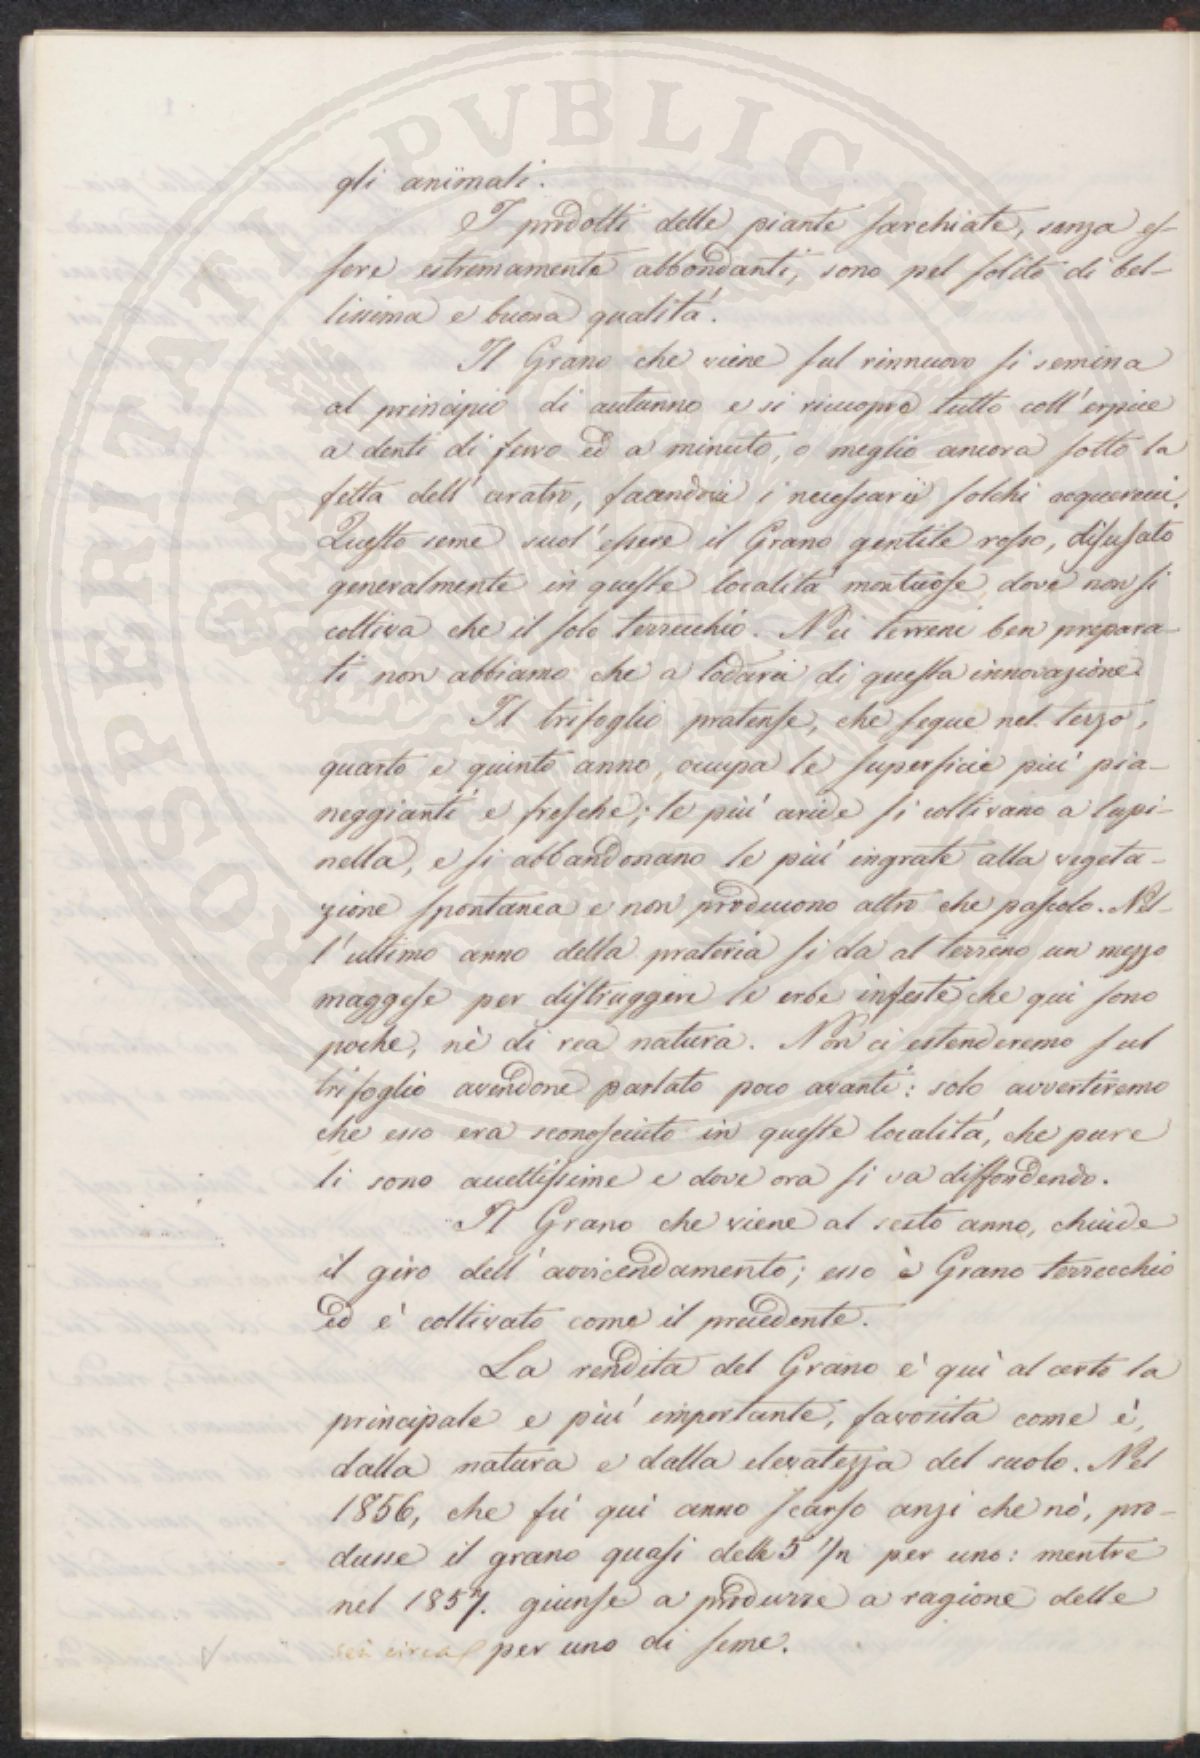 PROSPERITATI PUBLICAE AUGENDAE
gli animali.
I prodotti delle piante sarchiate, senza es-
sere estremamente abbondanti, sono pel solito di bel-
lissima e buona qualità.
Il Grano che viene sul rinnuovo si semina
al principio di autunno e si ricuopre tutto coll'erpice
a denti di ferro ed a minuto, o meglio ancora sotto la
fetta dell'aratro, facendovi i necessarii solchi acquereci.
Questo seme suol'essere il Grano gentile rosso, disusato
generalmente in queste località montuose dove non si
coltiva che il solo terrecchio. Nei terreni ben prepara-
ti non abbiamo che a lodarci di questa innovazione.
Il trifoglio pratense, che segue nel terzo,
quarto e quinto anno, occupa le superficie piú pia-
neggianti e fresche; le piú aride si coltivano a lupi-
nella, e si abbandonano le piú ingrate alla vegeta-
zione spontanea e non producono altro che pascolo. Nel-
l'ultimo anno della prateria si da al terreno un mezzo
maggese per distruggere le erbe infeste che qui sono
poche, nè di rea natura. Non ci estenderemo sul
trifoglio avendone parlato poco avanti: solo avvertiremo
che esso era sconosciuto in queste località, che pure
li sono accettissime e dove ora si va diffondendo.
Il Grano che viene al sesto anno, chiude
il giro dell'avvicendamento; esso è Grano terrecchio
ed è coltivato come il precedente.
La rendita del Grano è quì al certo la
principale e piú importante, favorita come è,
dalla natura e dalla elevatezza del suolo. Nel
1856, che fù quì anno scarso anzi che nò, pro-
dusse il grano quasi delle 5 1/2 per uno: mentre
nel 1857. giunse a produrre a ragione delle
sei circa per uno di seme.